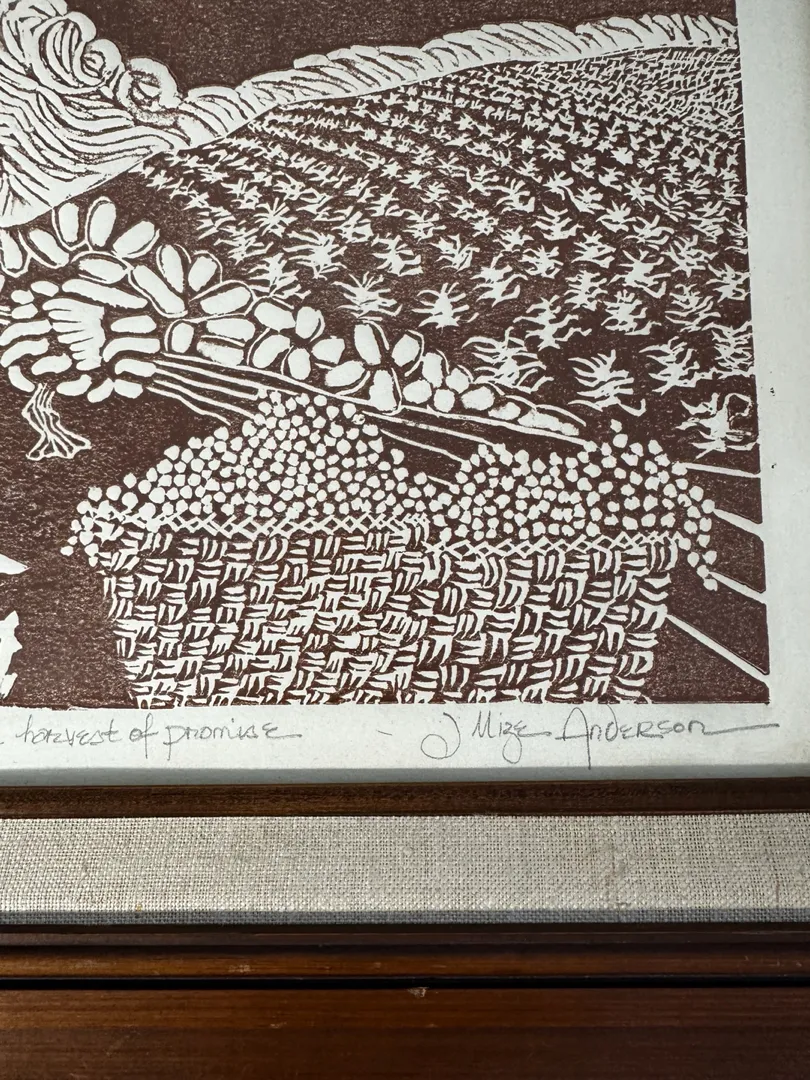 harvest of promise - J Mize Anderson